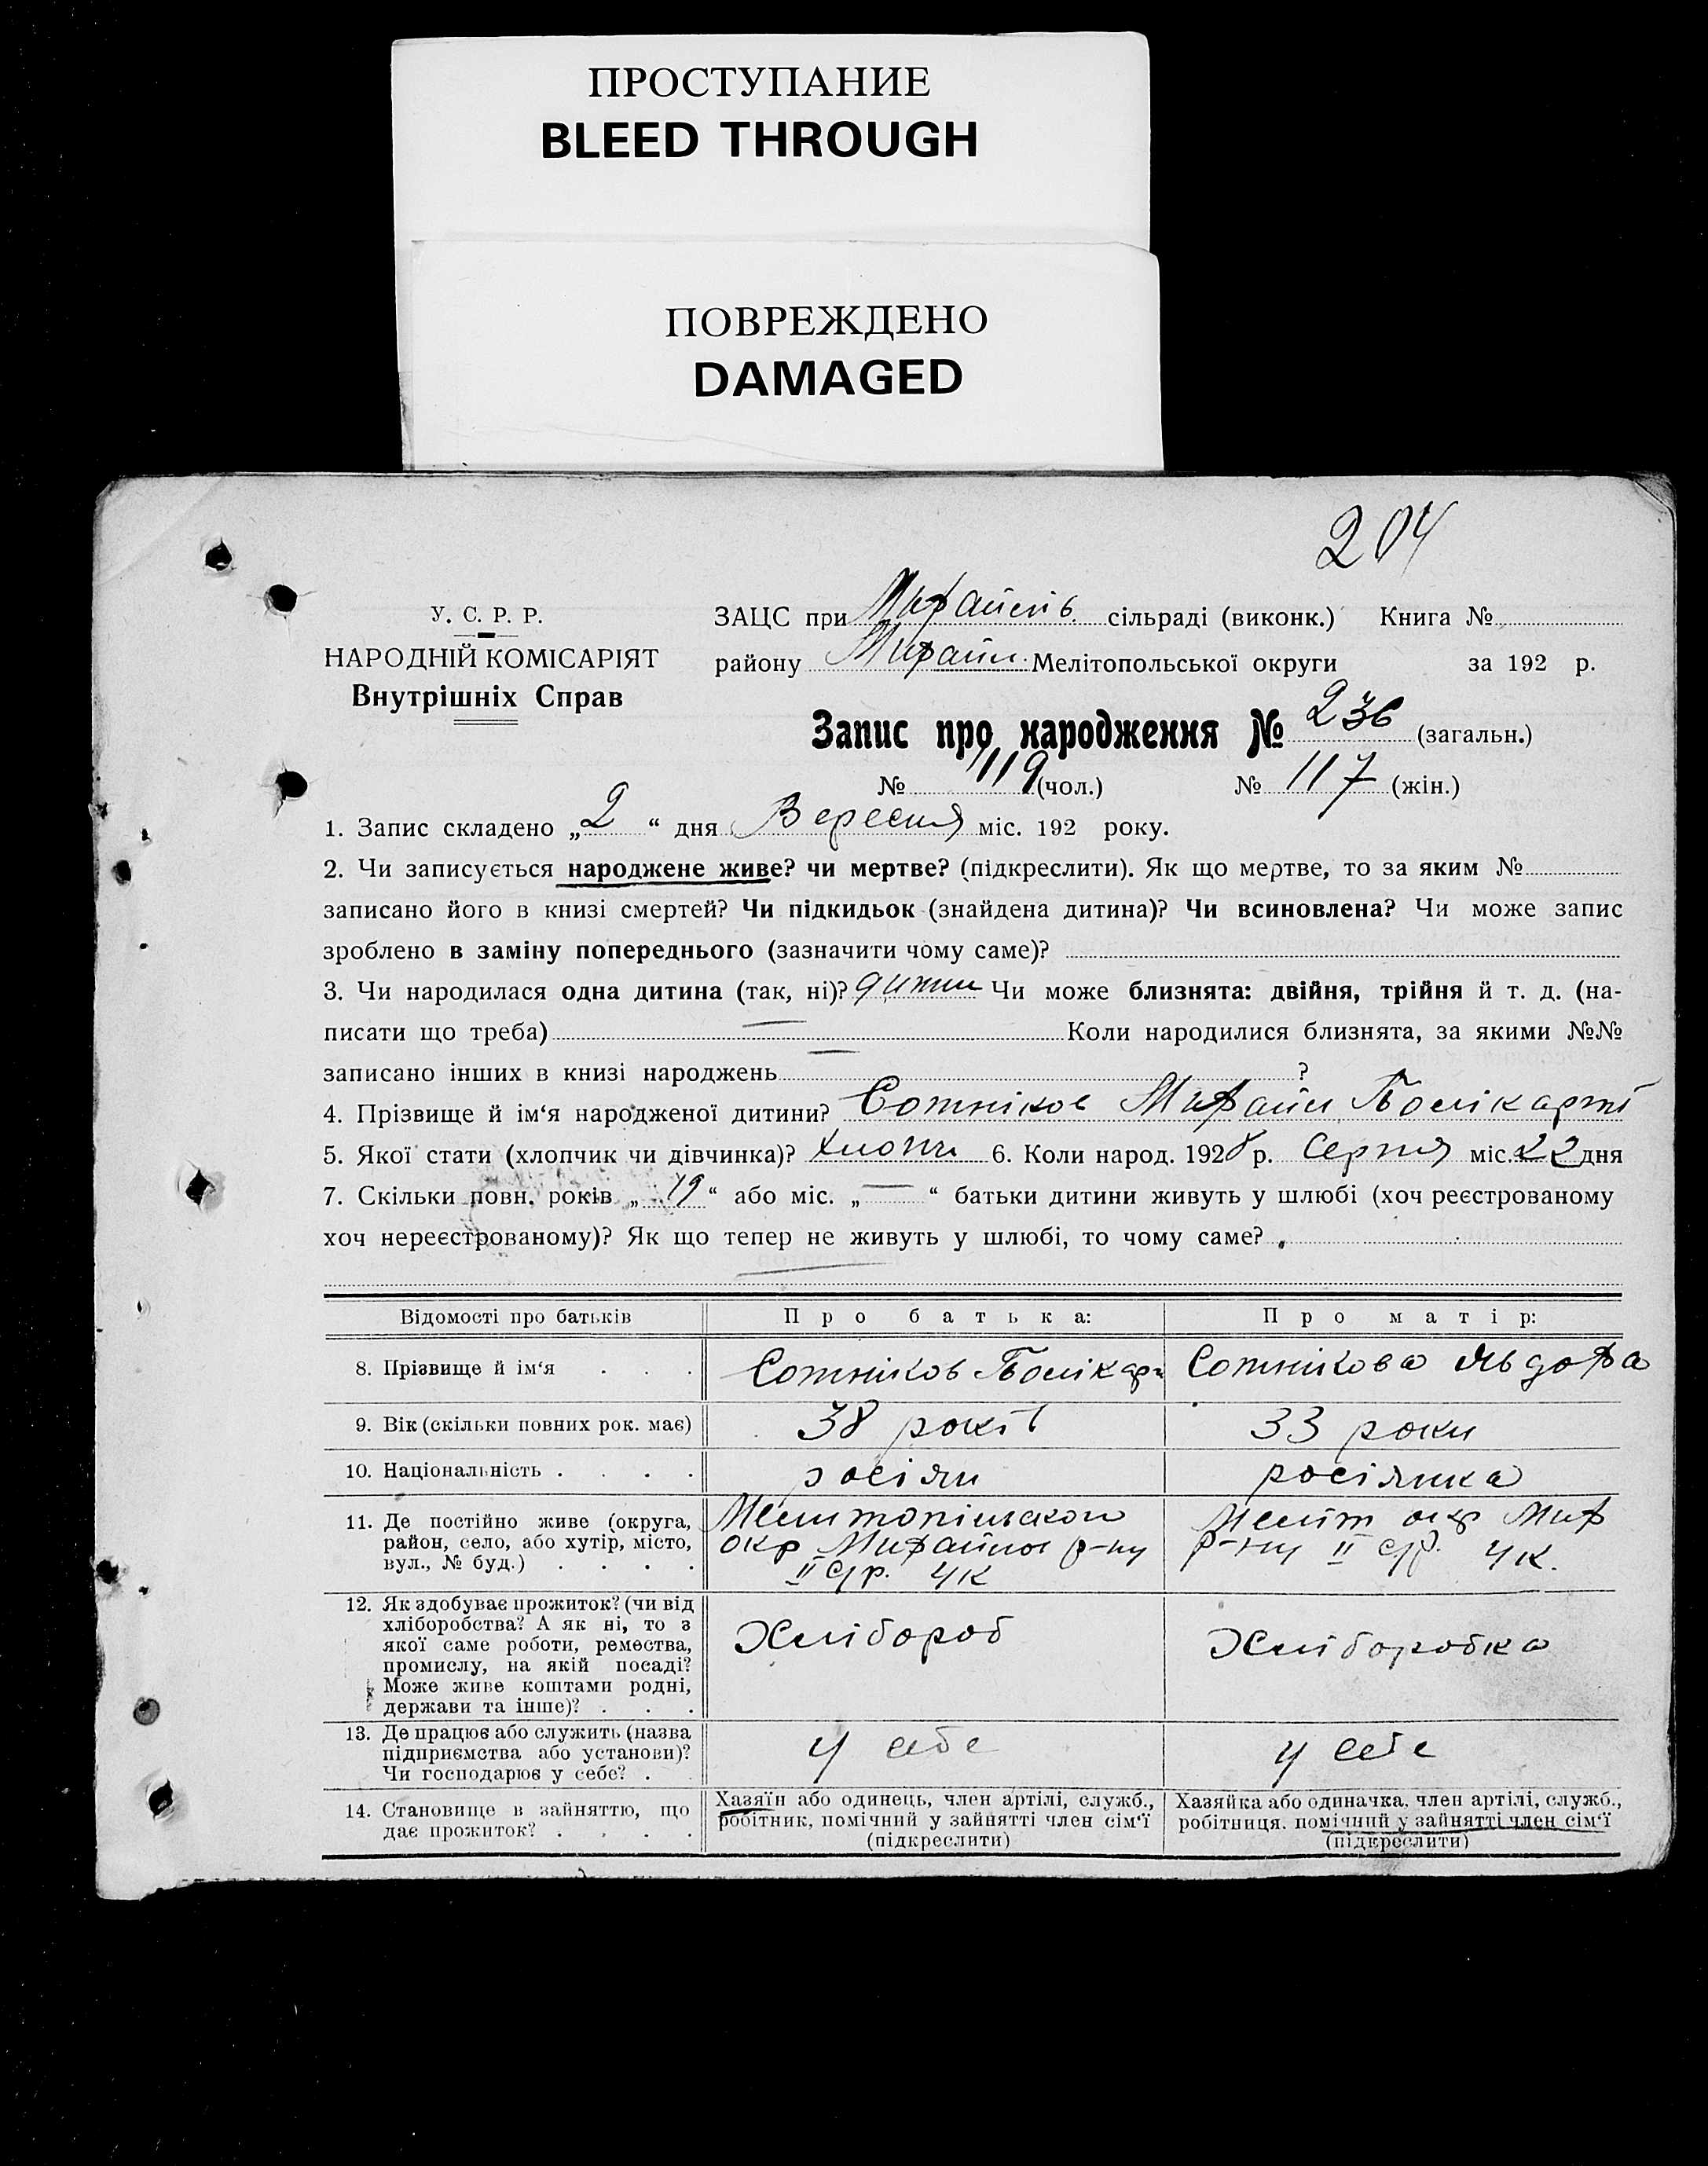 ПРОСТУПАНИЕ
BLEED THROUGH
ПОВРЕЖДЕНО
DAMAGED
204
У. С. Р. Р.
НАРОДНІЙ КОМІСАРІЯТ
Внутрішніх Справ
ЗАЦС при Михайлів. сільраді (виконк.) Книга №
району Михайл. Мелітопольської округи за 192 р.
Запис про народження № 236 (загальн.)
№ 119 (чол.) № 117 (жін.)
1. Запис складено „ 2 “ дня Вересня міс. 192 року.
2. Чи записується народжене живе? чи мертве? (підкреслити). Як що мертве, то за яким №
записано його в книзі смертей? Чи підкидьок (знайдена дитина)? Чи всиновлена? Чи може запис
зроблено в заміну попереднього (зазначити чому саме)?
3. Чи народилася одна дитина (так, ні)? Чи може близнята: двійня, трійня й т. д. (на-
писати що треба) — Коли народилися близнята, за якими №№
записано інших в книзі народжень — ?
4. Прізвище й ім‘я народженої дитини? Сотніков Михайл Полікарпі
5. Якої стати (хлопчик чи дівчинка)? Хлопч 6. Коли народ. 1928 р. Серпня міс. 22 дня
7. Скільки повн. років „ 19 “ або міс. „ — “ батьки дитини живуть у шлюбі (хоч реєстрованому
хоч нереєстрованому)? Як що тепер не живуть у шлюбі, то чому саме?
—
Відомості про батьків Про батька: Про матір:
8. Прізвище й ім‘я . . . Сотніков Полікарп Сотнікова Явдоха
9. Вік (скільки повних рок. має) 38 років 33 роки
10. Національність . . . . росіян росіянка
11. Де постійно живе (округа, Мелітопільскої Меліт окр Мих
район, село, або хутір, місто, окр Михайлів р-ну р-ну II с/р. ЧК.
вул., № буд.) . . . . II с/р. ЧК
12. Як здобуває прожиток? (чи від
хліборобства? А як ні, то з
якої саме роботи, ремества, Хлібороб Хліборобка
промислу, на якій посаді?
Може живе коштами родні,
держави та інше)? . . .
13. Де працює або служить (назва
підприємства або установи)? у себе у себе
Чи господарює у себе? .
14. Становище в зайняттю, що Хазяїн або одинець, член артілі, служб., Хазяйка або одиначка, член артілі, служб.,
дає прожиток? . . . . робітник, помічний у зайнятті член сім‘ї робітниця, помічний у зайнятті член сім‘ї
(підкреслити) (підкреслити)